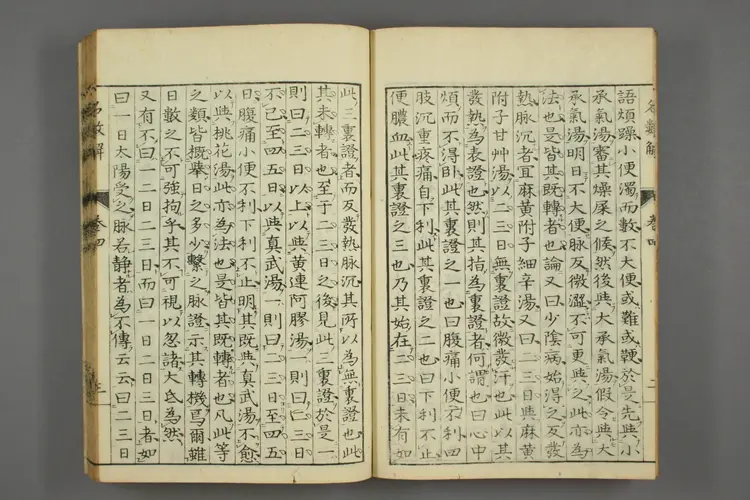 語煩躁小便濁而數不大便或難或鞕於是先與小
承氣湯審其燥屎之候然後與大承氣湯假令與大
承氣湯明日不大便脉反微澀不可更與之此亦為
法也是皆其既轉者也論又曰少陰病始得之反發
熱脉沉者宜麻黄附子細辛湯又曰二三日與麻黄
附子甘艸湯以二三日無裏證故微發汗也此以其
發熱為表證也然則其指為裏證者何謂也曰心中
煩而不得臥此其裏證之一也曰腹痛小便不利四
肢沉重疼痛自下利此其裏證之二也曰下利不止
便膿血此其裏證之三也乃其始在二三日未有如
此三裏證者而反發熱脉沉其所以為無裏證也此
其未轉者也至于二三日之後見此三裏證於是一
則曰二三日以上以與黄連阿膠湯一則曰二三日
不已至四五日以與真武湯一則曰二三日至四五
日腹痛小便不利下利不止明其既與真武湯不愈
以與桃花湯此亦為法也是皆其既轉者也凡此等
之類皆概舉日之多少繫之脉證示其轉機焉爾雖
日數之不可強拘乎其不可視以忽諸大氐為然
又有不曰一二日二三日而曰一日二日三日者如
曰一日太陽受之脉若静者為不傳云云曰二三日
卷四
二
卷四